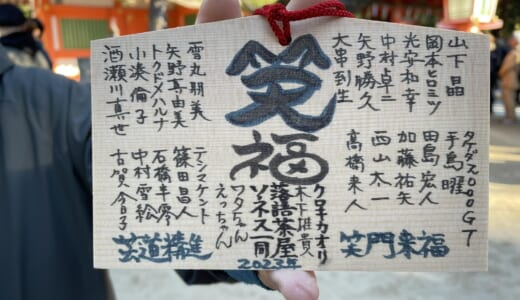 山下晶
岡本ヒロミツ
光安和幸
中村卓二
矢野勝久
大串到生
タケダ2000GT
手島曜
田島宏人
加藤祐矢
西山太一
高橋来人
笑門来福
笑福
クロチカオリ
木下雅貴
落語茶屋
ソネス一同
ワタちゃん
えっちゃん
2023年
雲丸朋美
矢野真由美
トクドメハルナ
小湊倫子
酒瀬川真世
テンスケント
篠田昌人
石橋半零
中村雪絵
古賀今日子
芸道精進